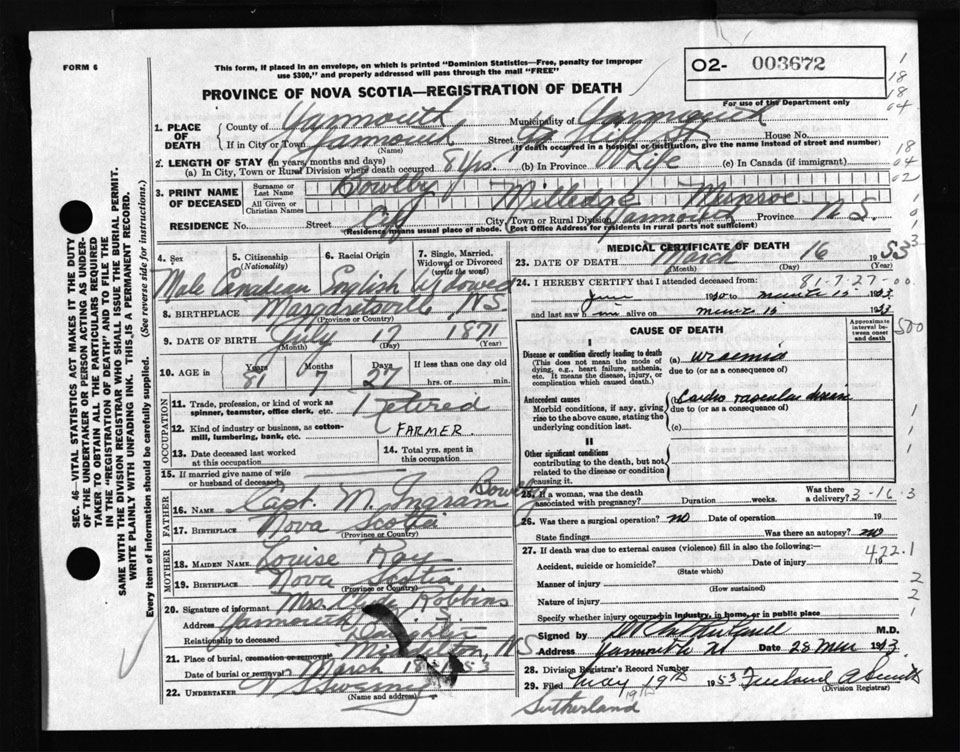 FORM 6
This form, if placed in an envelope, on which is printed "Dominion Statistics—Free, penalty for improper
use $300," and properly addressed will pass through the mail "FREE"
O2- 003672
PROVINCE OF NOVA SCOTIA—REGISTRATION OF DEATH
For use of the Department only
1. PLACE OF DEATH
County of Yarmouth Municipality of Yarmouth
If in City or Town Yarmouth Street Hill St House No.
(Name) (If death occurred in a hospital or institution, give the name instead of street and number)
2. LENGTH OF STAY (in years, months and days)
(a) In City, Town or Rural Division where death occurred 8 yrs. (b) In Province Life (c) In Canada (if immigrant)
3. PRINT NAME OF DECEASED
Surname or Last Name Bowlby
All Given or Christian Names Milledge Munroe
RESIDENCE No. Street City, Town or Rural Division Yarmouth Province N.S.
(Residence means usual place of abode. Post Office Address for residents in rural parts not sufficient)
4. Sex Male
5. Citizenship (Nationality) Canadian
6. Racial Origin English
7. Single, Married, Widowed or Divorced (write the word) Widowed
8. BIRTHPLACE Margaretsville NS
(Province or Country)
9. DATE OF BIRTH July 17 1871
(Month) (Day) (Year)
10. AGE in Years 81 Months 7 Days 27 If less than one day old
hrs. or min.
OCCUPATION
11. Trade, profession, or kind of work as spinner, teamster, office clerk, etc. Retired
12. Kind of industry or business, as cotton-mill, lumbering, bank, etc. FARMER.
13. Date deceased last worked at this occupation
14. Total yrs. spent in this occupation
15. If married give name of wife or husband of deceased
FATHER
16. Name Capt. M. Ingram Bowlby
17. BIRTHPLACE Nova Scotia
(Province or Country)
MOTHER
18. MAIDEN NAME Louise Ray
19. BIRTHPLACE Nova Scotia
(Province or Country)
20. Signature of informant Mrs. Robbins
Address Yarmouth
Relationship to deceased Daughter
21. Place of burial, cremation or removal Middleton, NS
Date of burial or removal March 18 1953
22. UNDERTAKER Sweeny
(Name and address)
MEDICAL CERTIFICATE OF DEATH
23. DATE OF DEATH March 16 1953
(Month) (Day)
24. I HEREBY CERTIFY that I attended deceased from: 81-7-27-00
1953
and last saw him alive on 1953
CAUSE OF DEATH
Approximate interval between onset and death
I
Disease or condition directly leading to death (a) Uraemia
(This does not mean the mode of dying, e.g., heart failure, asthenia, etc. It means the disease, injury, or complication which caused death.)
due to (or as a consequence of)
Antecedent causes (b) Cardio vascular disease
Morbid conditions, if any, giving rise to the above cause, stating the underlying condition last.
due to (or as a consequence of)
(c)
II
Other significant conditions
contributing to the death, but not related to the disease or condition causing it.
25. If a woman, was the death associated with pregnancy? Duration weeks. Was there a delivery? 3-16-3
26. Was there a surgical operation? no Date of operation 19
State findings Was there an autopsy? no
27. If death was due to external causes (violence) fill in also the following:— 422.1
Accident, suicide or homicide? Date of injury 19
(State which)
Manner of injury
(How sustained)
Nature of injury
Specify whether injury occurred in industry, in home, or in public place
Signed by M.D.
Address Yarmouth NS Date 28 1953
28. Division Registrar's Record Number
29. Filed May 19th 1953 Freeland A Smith
(Division Registrar)
Sutherland
SEC. 46—VITAL STATISTICS ACT MAKES IT THE DUTY
OF THE UNDERTAKER OR PERSON ACTING AS UNDER-
TAKER TO OBTAIN ALL THE PARTICULARS REQUIRED
IN THE "REGISTRATION OF DEATH" AND TO FILE THE
SAME WITH THE DIVISION REGISTRAR WHO SHALL ISSUE THE BURIAL PERMIT.
WRITE PLAINLY WITH UNFADING INK. THIS IS A PERMANENT RECORD.
Every item of information should be carefully supplied. (See reverse side for instructions.)